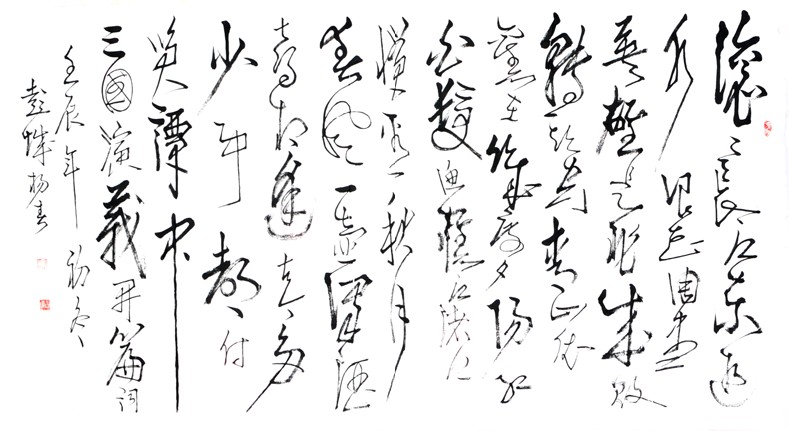 滚滚长江东逝
水浪花淘尽
英雄是非成败
转头空青山依
旧在几度夕阳红
白发渔樵江渚上
惯看秋月
春风一壶浊酒
喜相逢古今多
少事都付
笑譚中
三國演義开篇词
壬辰年初冬
彭城杨